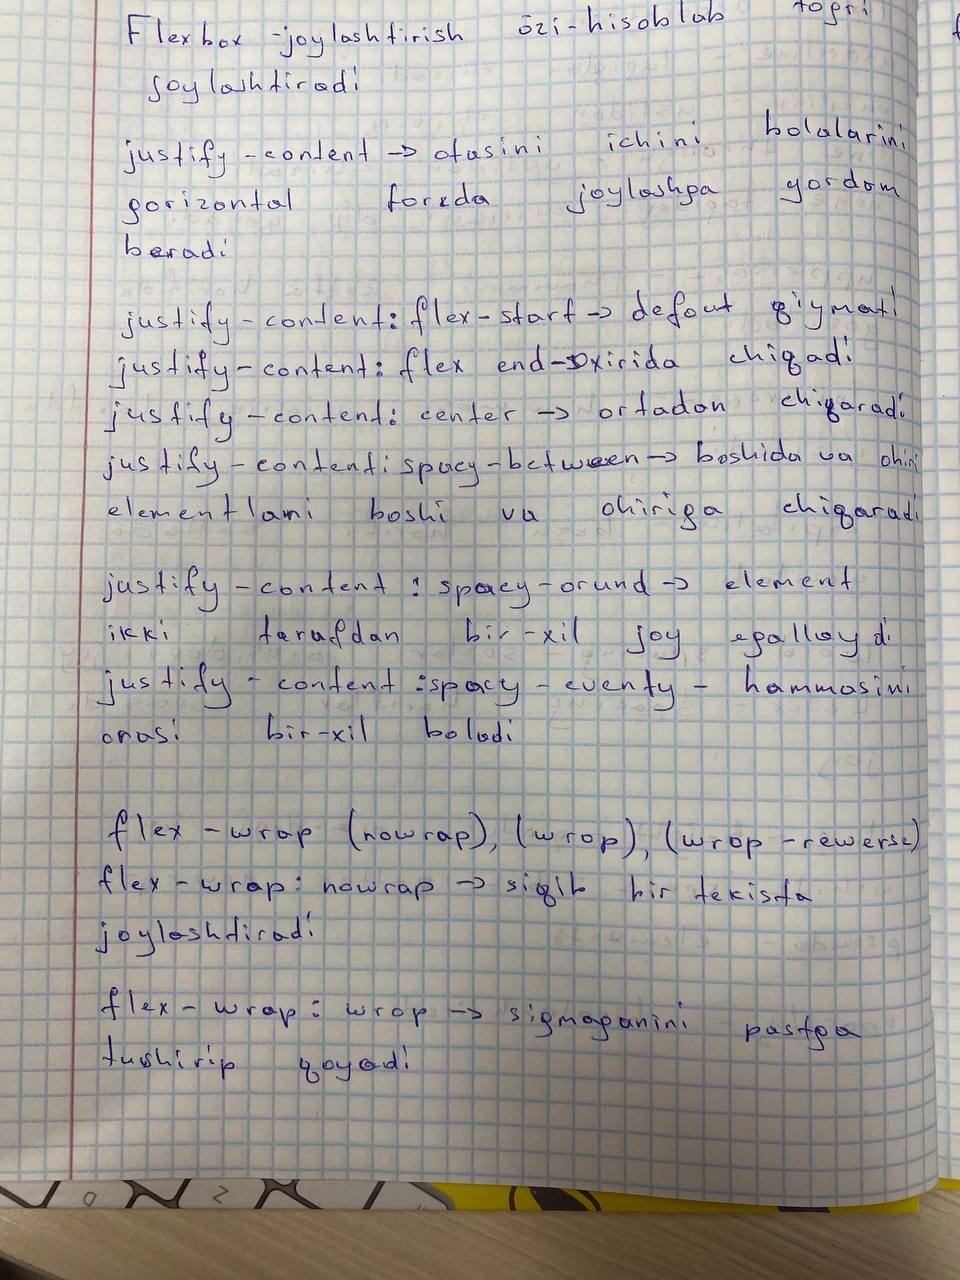 Flexbox - joylashtirish özi-hisoblab togri
joylashtiradi
justify-content -> otasini ichini bolalarini
gorizontal forada joylashga yordam
beradi
justify-content: flex-start -> defout qiymati
justify-content: flex end -> oxirida chiqadi
justify-content: center -> ortadan chiqaradi
justify-content: spacy-between -> boshida va ohiri
elementlani boshi va ohiriga chiqaradi
justify-content: spacy-orund -> element
ikki tarafdan bir-xil joy egallaydi
justify-content: spacy-eventy - hammasini
orasi bir-xil boladi
flex-wrap (nowrap), (wrap), (wrap-rewerse)
flex-wrap: nowrap -> siqib bir tekista
joylashtiradi
flex-wrap: wrap -> sigmaganini pastga
tushirip qoyadi